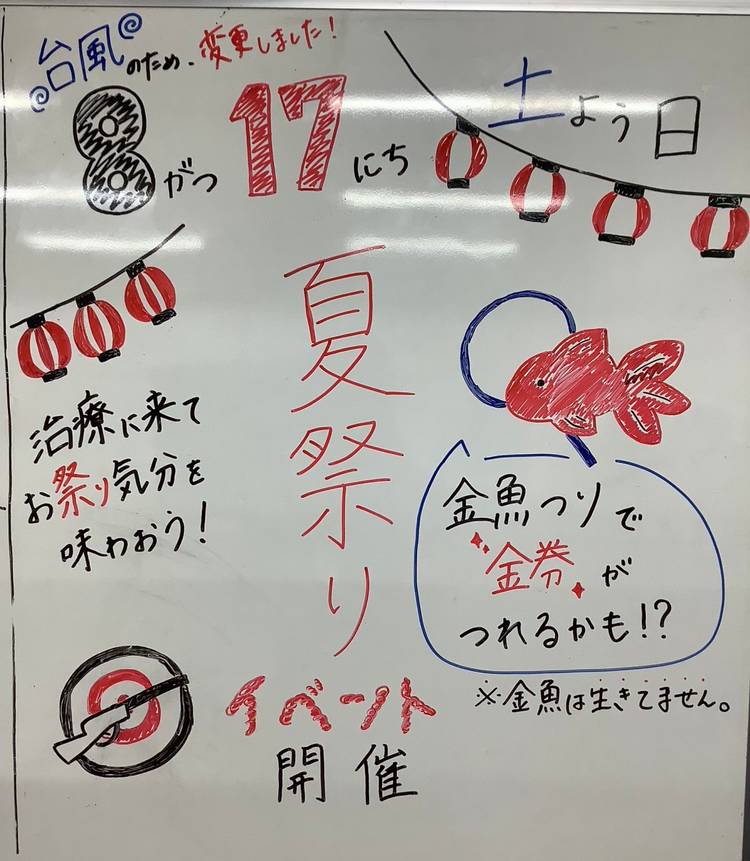 台風のため、変更しました!
8がつ17にち
土よう日
夏祭り
治療に来て
お祭り気分を
味わおう!
金魚つりで
金券が
つれるかも!?
※金魚は生きてません。
イベント
開催